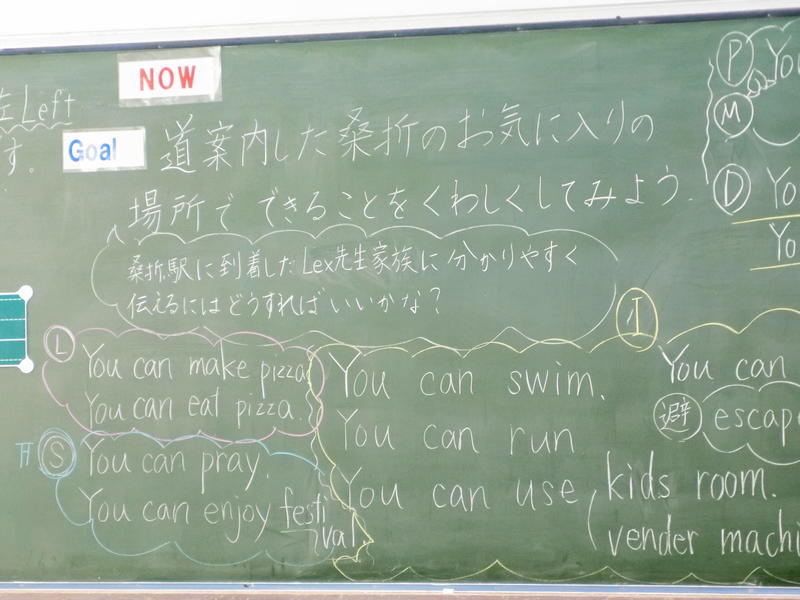 左Left
す。
NOW
Goal
道案内した桑折のお気に入りの
場所で できることをくわしくしてみよう.
桑折駅に到着したLex先生家族に分かりやすく
伝えるにはどうすればいいかな?
L
You can make pizza
You can eat pizza.
S
You can pray.
You can enjoy festi
val
エ
You can swim.
You can run
You can use kids room.
vender machi
You can
避 escap
P You
M
D Yo
Yo